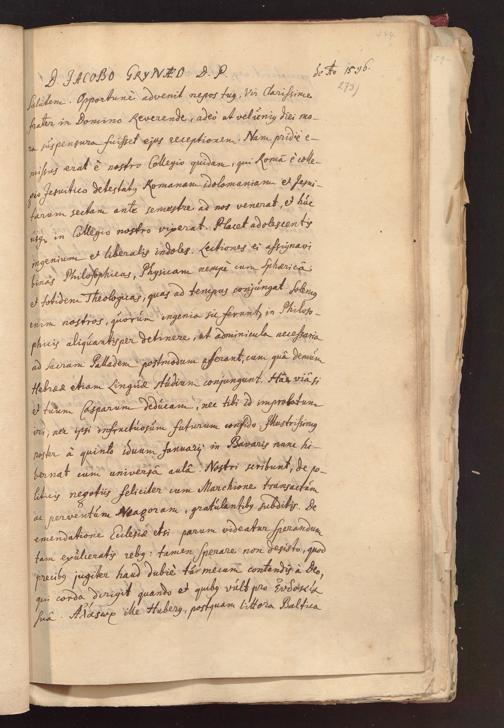 D. JACOBO GRYNÆO D. P. de Ao 1596.
273
Salutem. Opportunè advenit nepos tuq, Vir Clarissime
frater in Domino Reverende, adeò ut vel unig diei mo-
ra suspensura fuisset ejus receptionem. Nam pridie e-
missus erat è nostro Collegio quidam, qui Româ è colle-
gio Jesuitico detestatq Romanam idolomaniam et Jesui-
tarum sectam ante semestre ad nos venerat, et huc
usq in Collegio nostro vixerat. Placet adolescentis
ingenium et liberalis indoles. Lectiones ei assignavi
binas Philosophicas, Physicam nempè cum Sphæricâ
et totidem Theologicas, quas ad tempus conjungat. Soleo
enim nostros, quorum ingenia sic ferunt, in Philoso-
phicis aliquantisper detinere, ut adminicula necessaria
ad sacram Palladem postmodum afferant, cum quâ demùm
Hebrææ etiam Linguæ studium conjungunt. Hâc viâ si
et tuum Casparum deducam, nec tibi id improbatum
iri, nec ipsi infructuosum futurum confido. Illustrissimq
noster à quinto iduum Januarij in Bavaris nunc hi-
bernat cum universâ aulâ. Nostri scribunt, de po-
liticis negotijs feliciter cum Marchione transactum
ac perventum, gratulantibq subditis. De
emendatione Ecclesiæ etsi parum videatur sperandum
tam exulceratis rebq: tamen sperare non desisto, quod
precibq jugiter haud dubiè tu mecum contendis à Deo,
qui corda dirigit quando et quibq vult pro εὐδοκίᾳ
suâ. ille Huberq, postquam littora Baltica